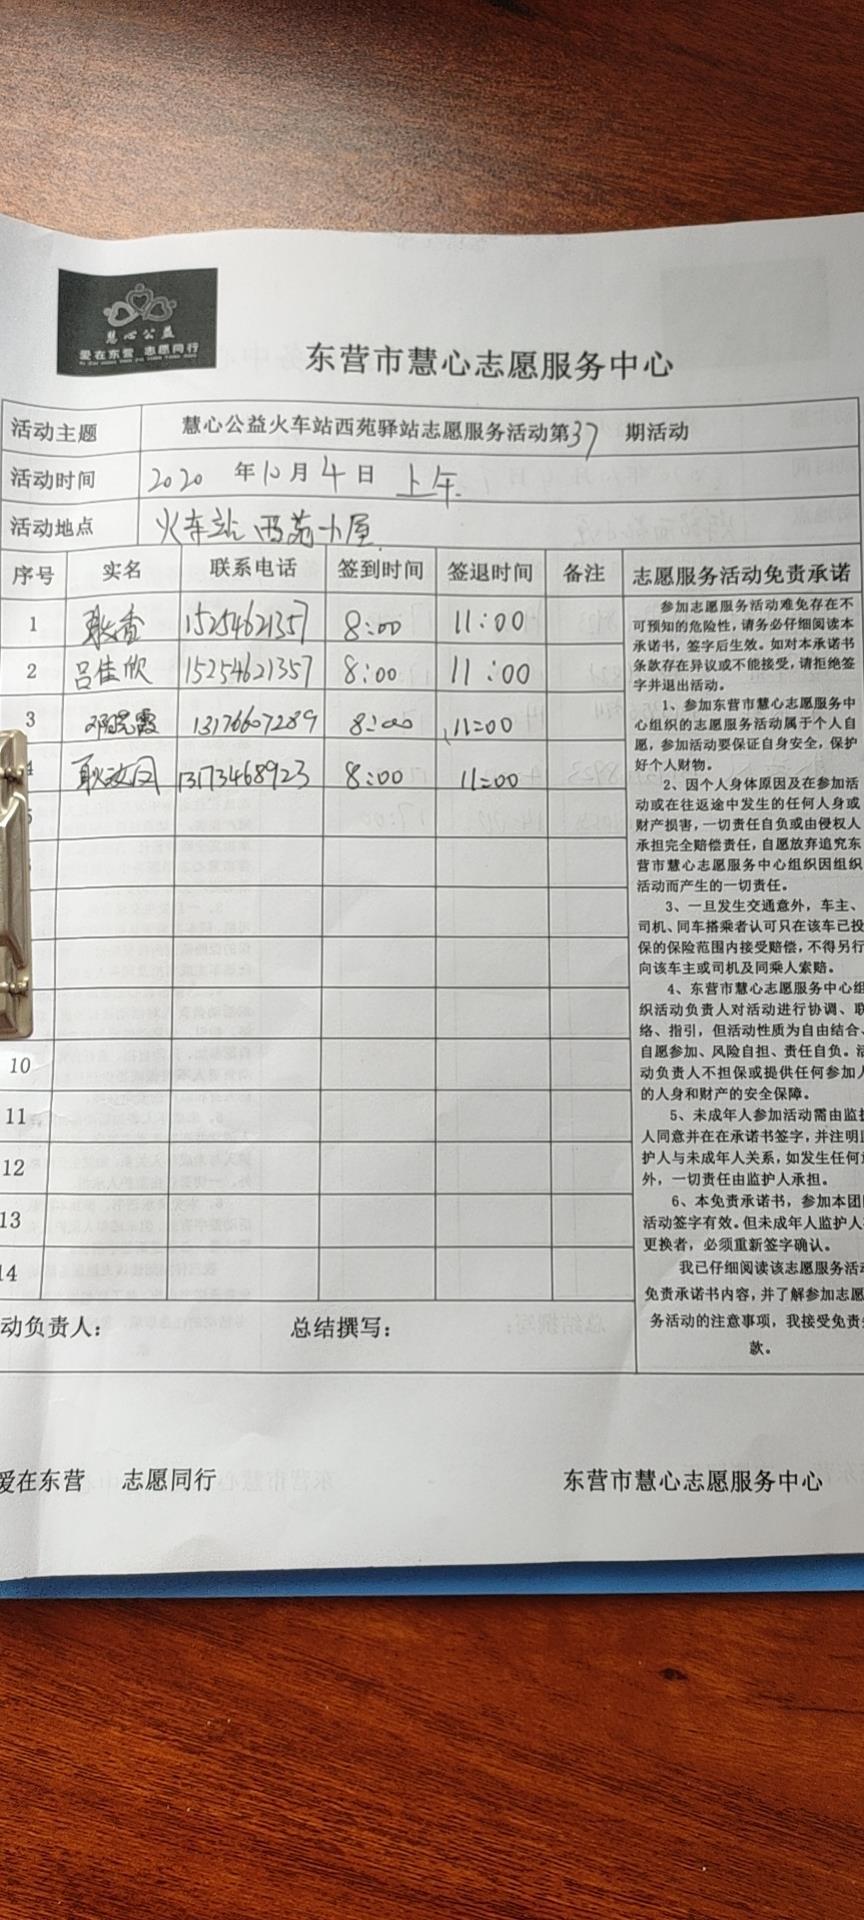 慧心公益
爱在东营 志愿同行
东营市慧心志愿服务中心
活动主题 慧心公益火车站西苑驿站志愿服务活动第37期活动
活动时间 2020年10月4日 上午
活动地点 火车站西苑小屋
序号 实名 联系电话 签到时间 签退时间 备注 志愿服务活动免责承诺
1 15254621357 8:00 11:00
2 吕佳欣 15254621357 8:00 11:00
3 邓晓霞 13176607289 8:00 11:00
4 13173468923 8:00 11:00
5
6
10
11
12
13
14
参加志愿服务活动难免存在不
可预知的危险性，请务必仔细阅读本
承诺书，签字后生效。如对本承诺书
条款存在异议或不能接受，请拒绝签
字并退出活动。
1、参加东营市慧心志愿服务中
心组织的志愿服务活动属于个人自
愿，参加活动要保证自身安全，保护
好个人财物。
2、因个人身体原因及在参加活
动或在往返途中发生的任何人身或
财产损害，一切责任自负或由侵权人
承担完全赔偿责任，自愿放弃追究东
营市慧心志愿服务中心组织因组织
活动而产生的一切责任。
3、一旦发生交通意外，车主、
司机、同车搭乘者认可只在该车已投
保的保险范围内接受赔偿，不得另行
向该车主或司机及同乘人索赔。
4、东营市慧心志愿服务中心组
织活动负责人对活动进行协调、联
络、指引，但活动性质为自由结合、
自愿参加、风险自担、责任自负。活
动负责人不担保或提供任何参加人
的人身和财产的安全保障。
5、未成年人参加活动需由监护
人同意并在在承诺书签字，并注明监
护人与未成年人关系，如发生任何意
外，一切责任由监护人承担。
6、本免责承诺书，参加本团队
活动签字有效。但未成年人监护人
更换者，必须重新签字确认。
我已仔细阅读该志愿服务活动
免责承诺书内容，并了解参加志愿
务活动的注意事项，我接受免责条
款。
动负责人： 总结撰写：
爱在东营 志愿同行 东营市慧心志愿服务中心